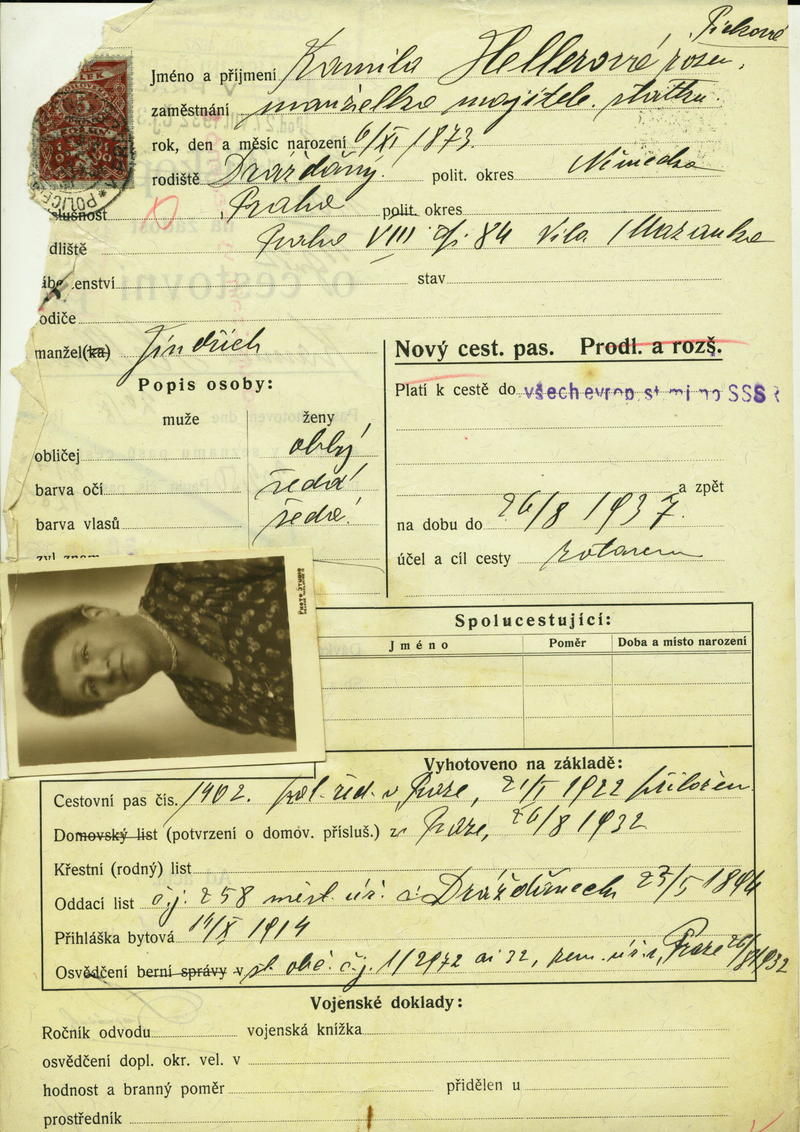 Jméno a příjmení Kamila Hellerová rozen.
zaměstnání manželka majitele statku.
rok, den a měsíc narození 6/XI 1873.
rodiště Drážďány. polit. okres Německo
slušnost Praha polit. okres
dliště Praha VIII čp. 84 Vila Mazanka
enství stav
odiče
manžel(ka) Jindřich
Nový cest. pas. Prodl. a rozš.
Popis osoby:
Platí k cestě do všech evrop. st. mimo SSSR
muže ženy
obličej oblý
barva očí šedá
barva vlasů šedé
zvl. znam
a zpět
na dobu do 26/8 1937.
účel a cíl cesty zotavení
PHOTO STUDIO
Spolucestující:
Jméno Poměr Doba a místo narození
Vyhotoveno na základě:
Cestovní pas čís. 1902. pol. řed. v Praze, 21/I 1922 přiložen
Domovský list (potvrzení o domov. přísluš.) z Praze, 26/8 1932
Křestní (rodný) list
Oddací list č.j. 258 měst. úř. v Drážďanech 23/5 1894
Přihláška bytová 14/X 1914
Osvědčení berní správy v st. obč. č.j. 1/2972 ai 32, zem. úř. v Praze 26/8 1932
Vojenské doklady:
Ročník odvodu vojenská knížka
osvědčení dopl. okr. vel. v
hodnost a branný poměr přidělen u
prostředník